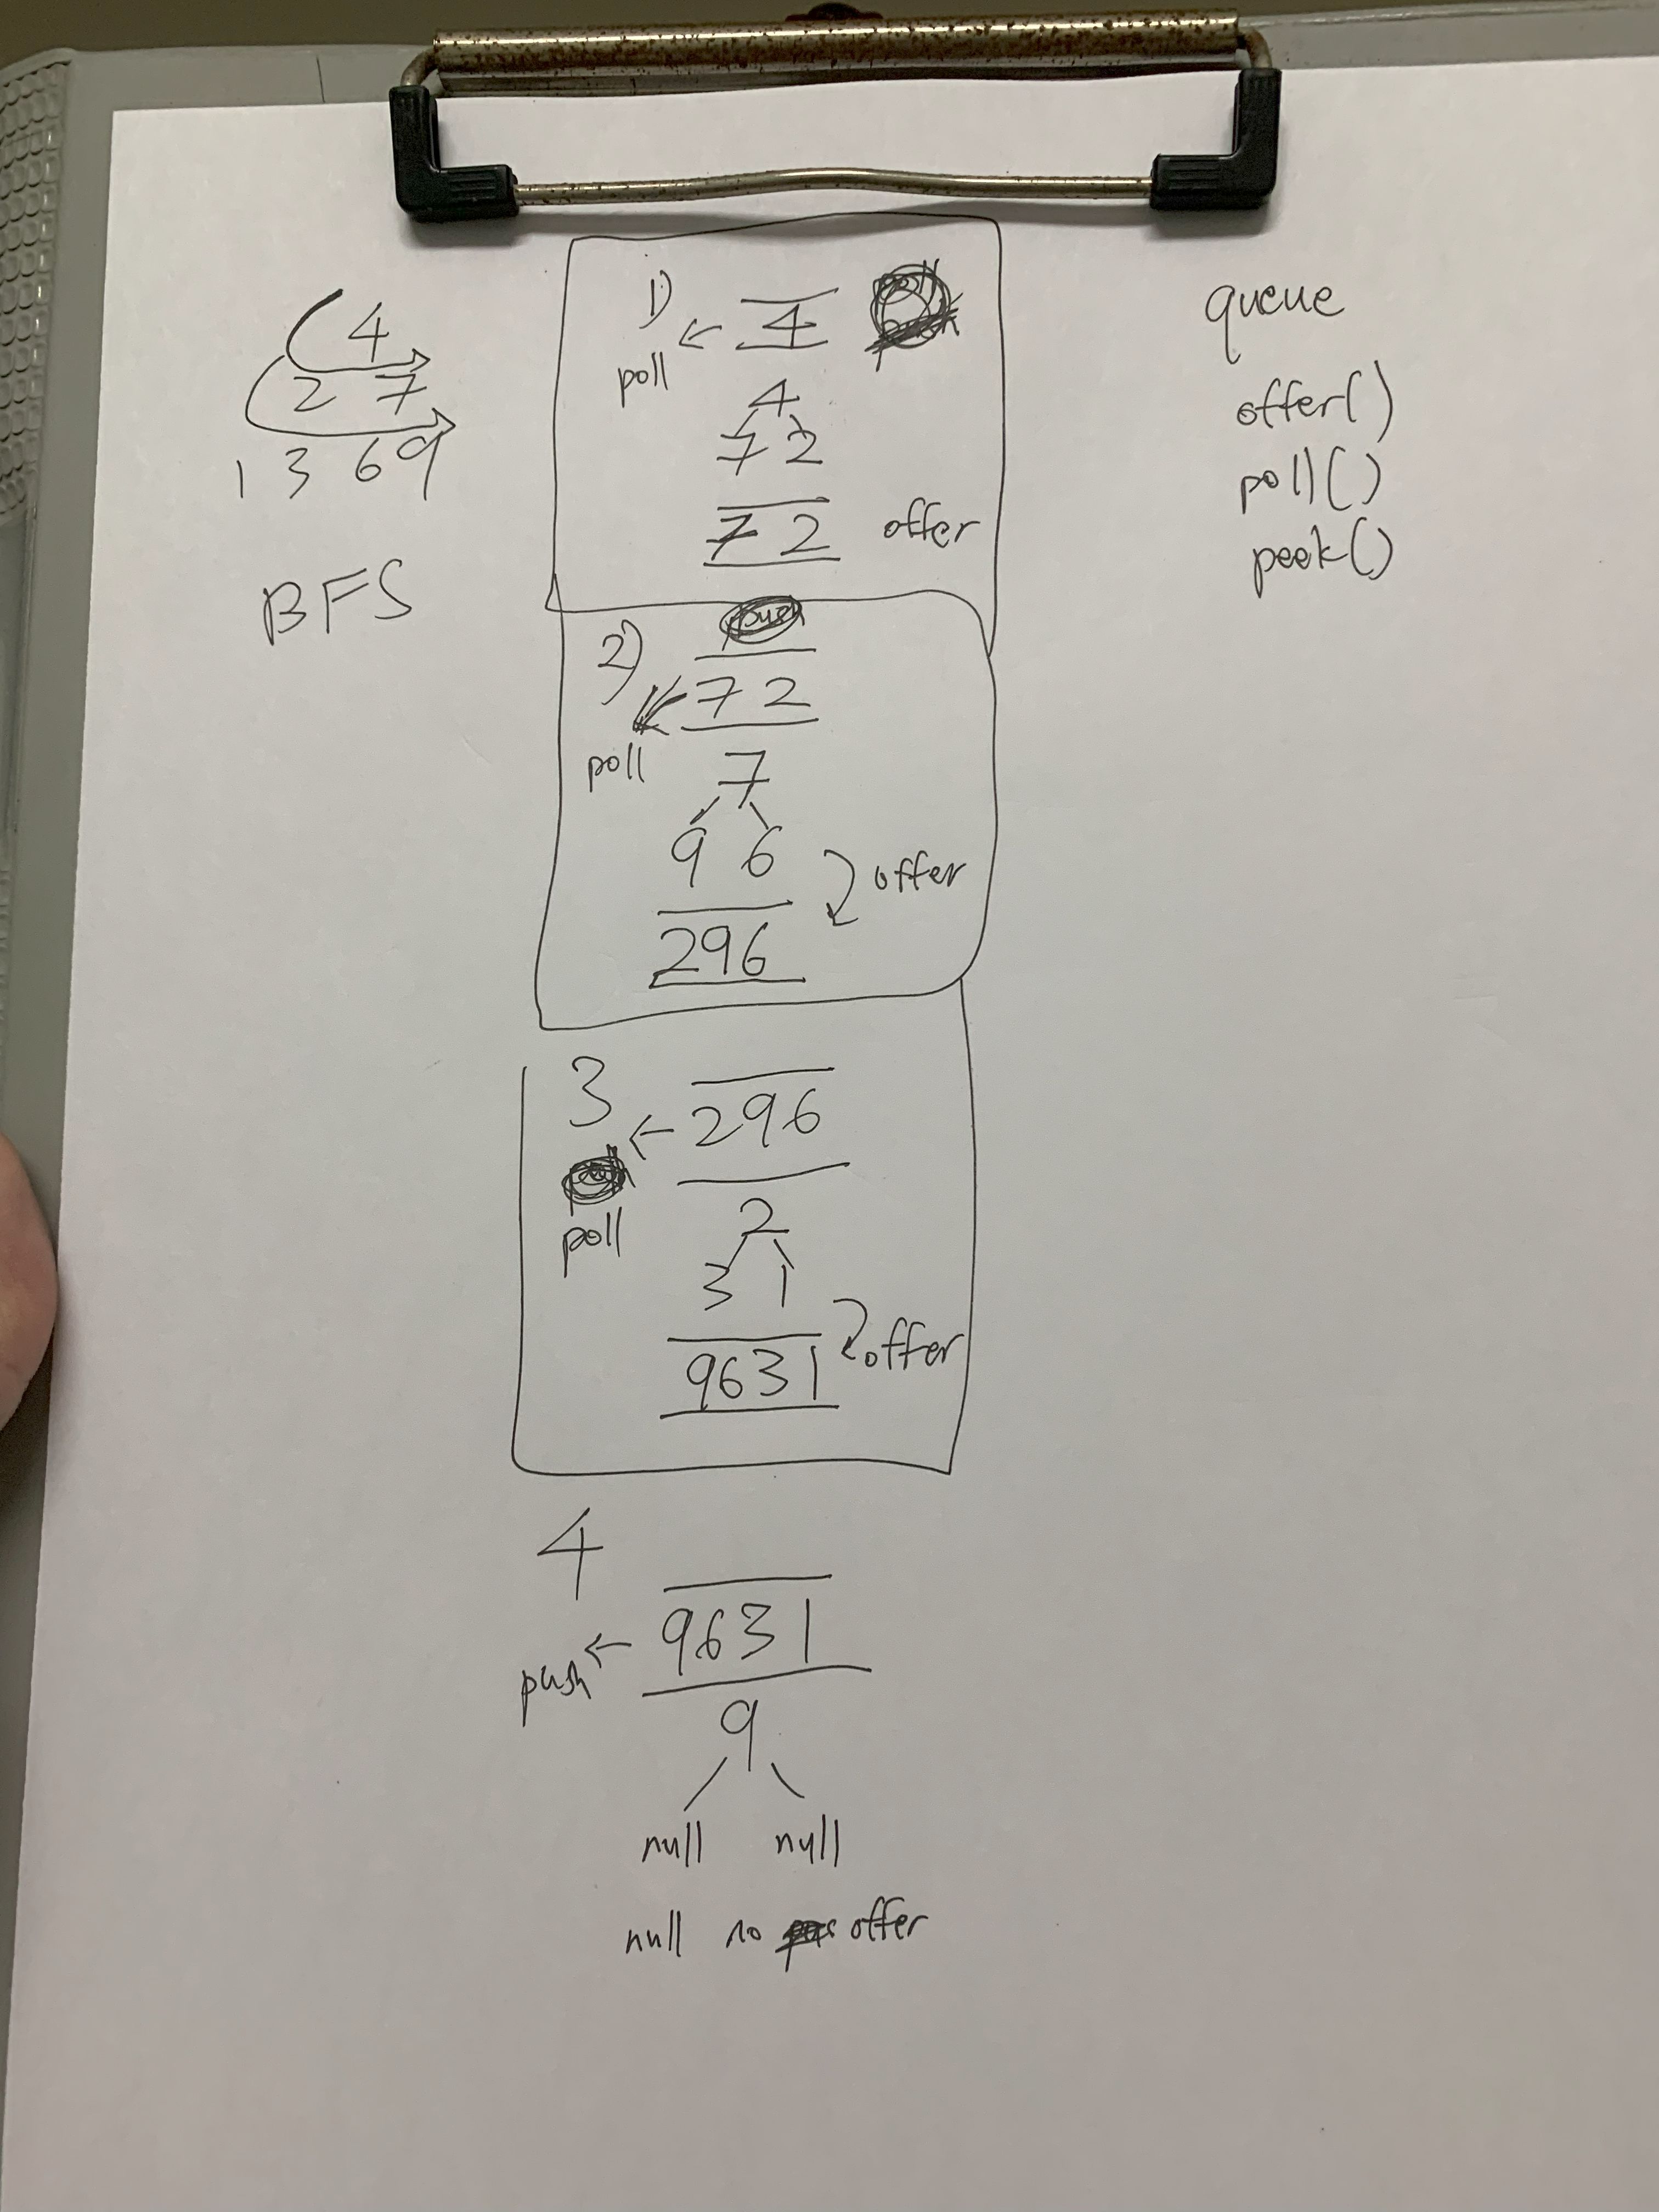 4
2 7
1 3 6 9
BFS
1)
poll ← 4
4
7 2
7 2 offer
2)
7 2
poll
7
9 6
offer
296
3
← 296
poll
2
3 1
offer
9631
4
push ← 9631
9
null null
null no offer
queue
offer()
poll()
peek()